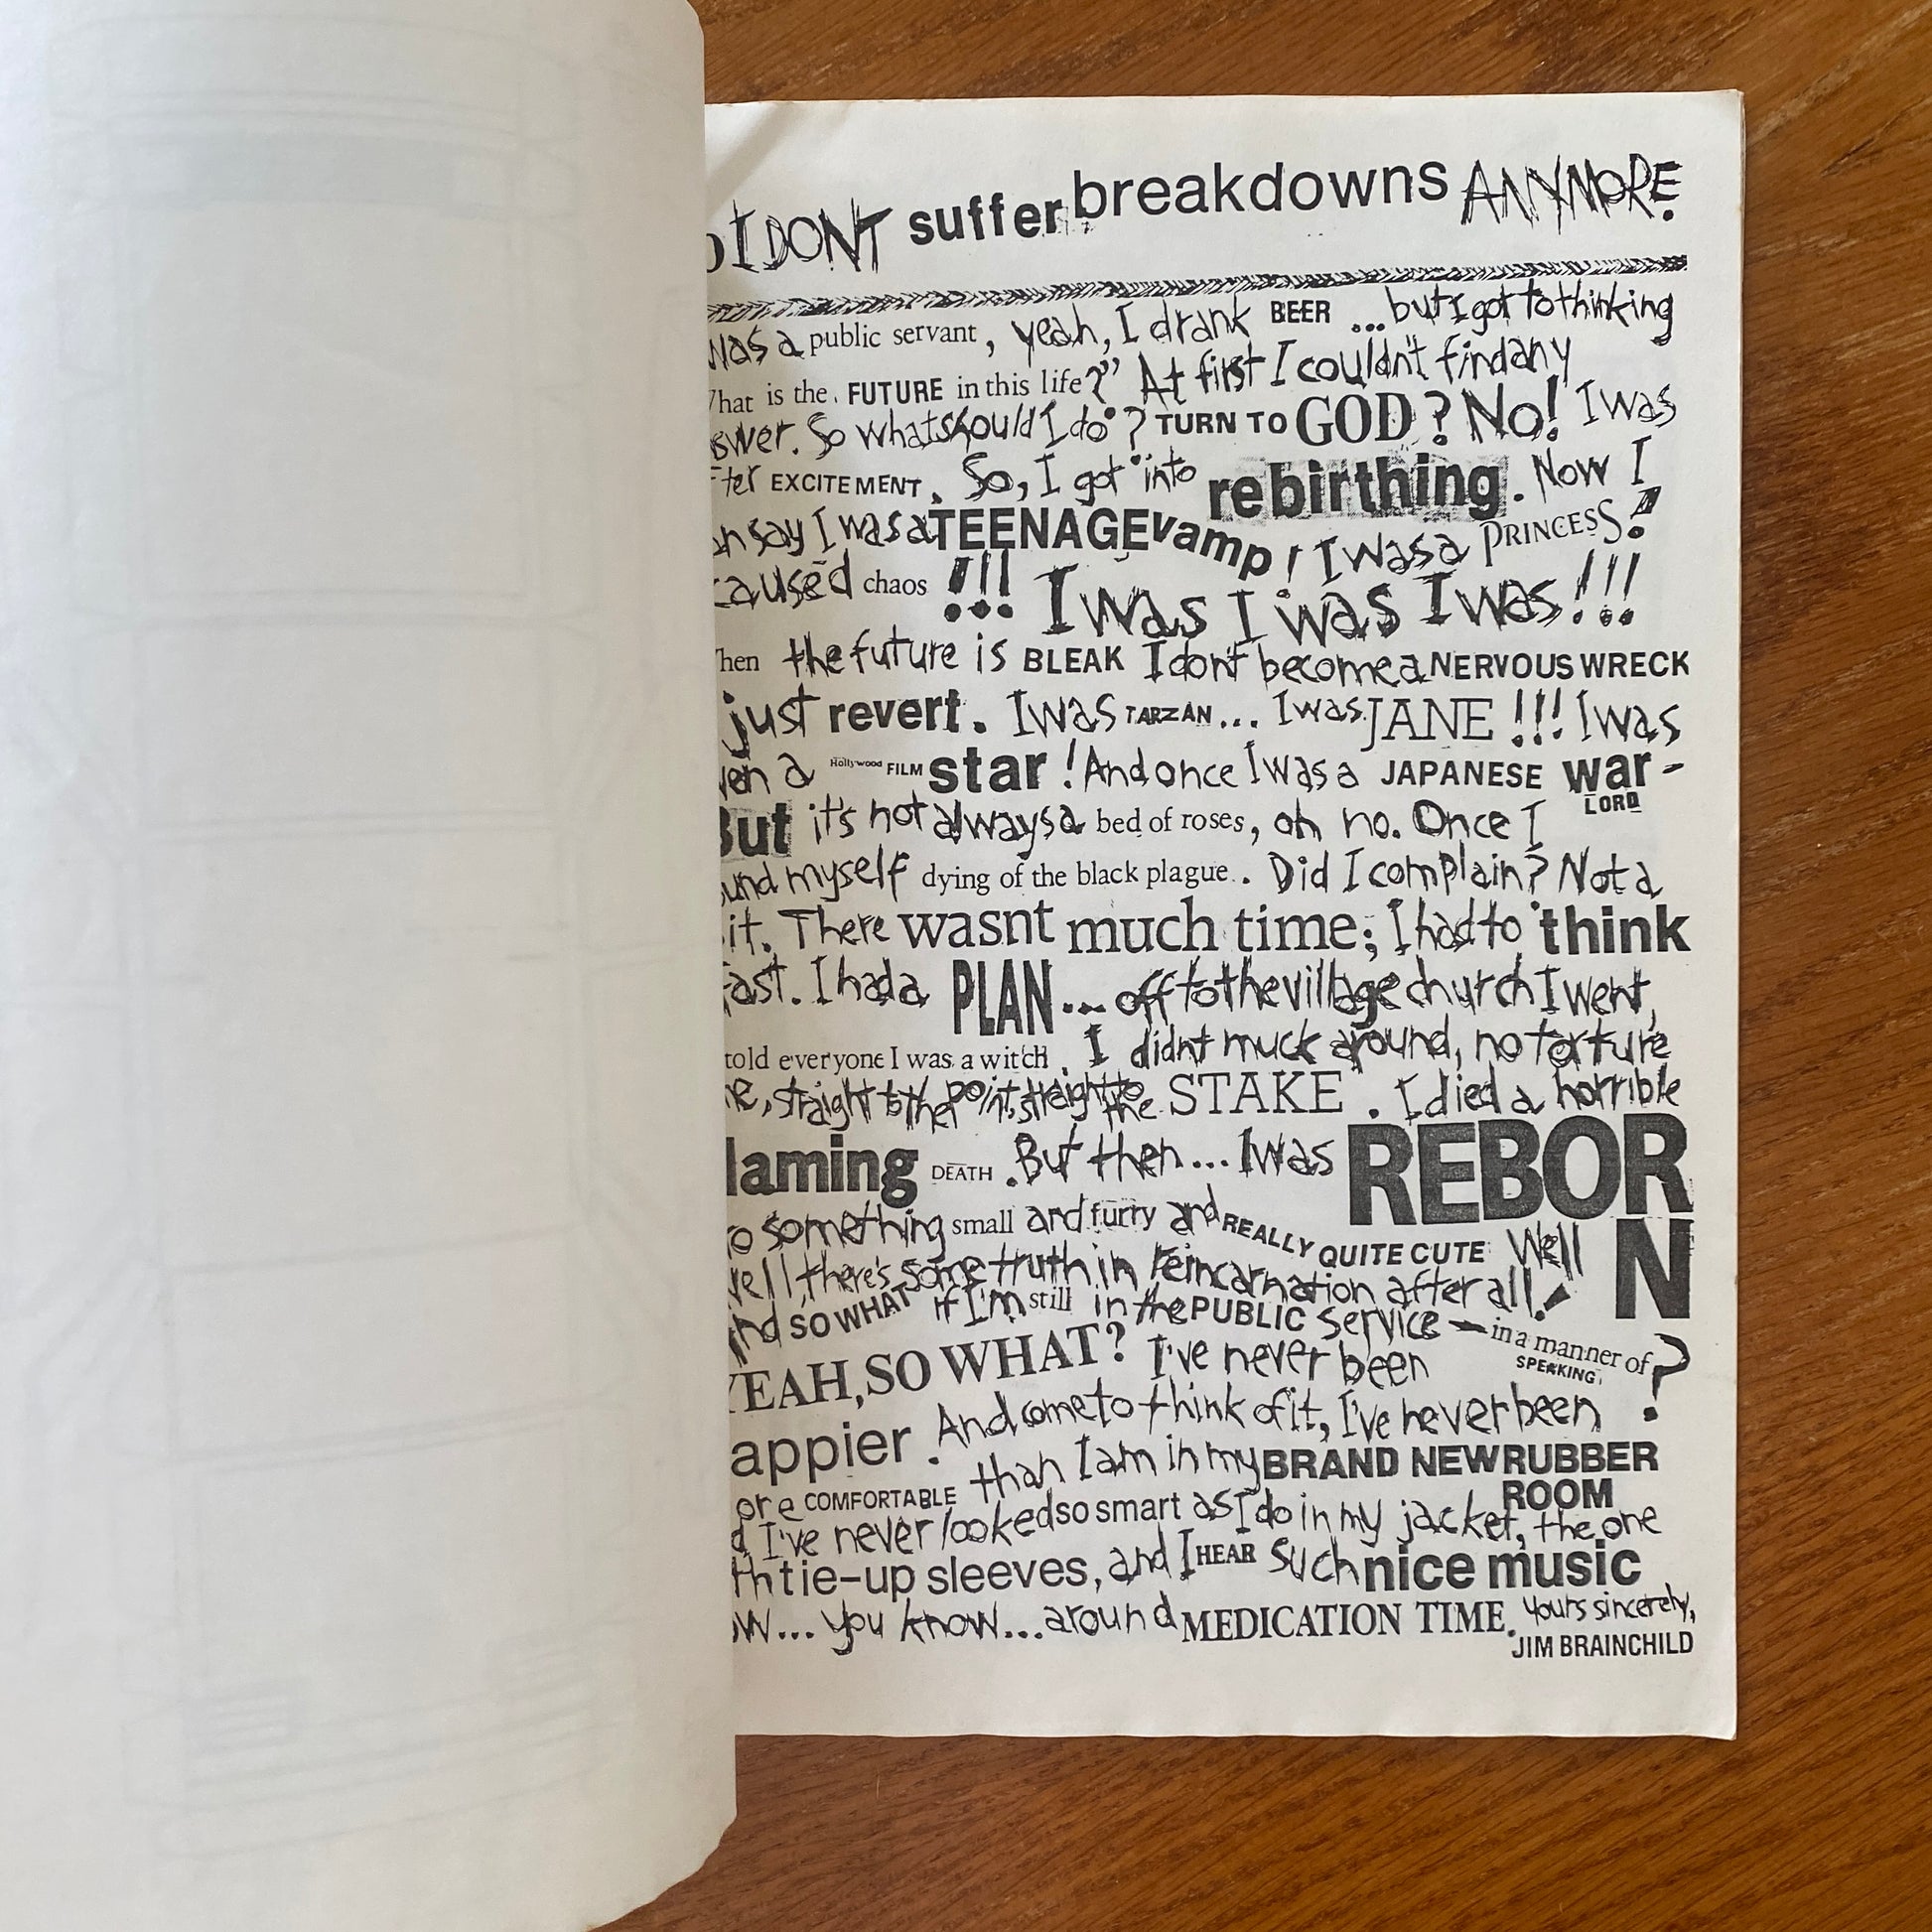 I DONT suffer breakdowns ANYMORE.
was a public servant, yeah, I drank BEER ...but I got to thinking
What is the FUTURE in this life?" At first I couldn't find any
swer. So what should I do? TURN TO GOD? No! I was
fter EXCITEMENT. So, I got into rebirthing. Now I
an say I was a TEENAGE vamp! I was a PRINCESS!
caused chaos!!! I was I was I was!!!
hen the future is BLEAK I don't become a NERVOUS WRECK
just revert. I was TARZAN... I was JANE!!! I was
ven a Hollywood FILM star! And once I was a JAPANESE war-
LORD
But it's not always a bed of roses, oh no. Once I
und myself dying of the black plague.. Did I complain? Not a
it. There wasnt much time; I had to think
fast. I had a PLAN... off to the village church I went,
told everyone I was a witch. I didnt muck around, no torture
me, straight to the point, straight to the STAKE. I died a horrible
laming DEATH. But then... I was REBOR
N
to something small and furry and REALLY QUITE CUTE Well
well, there's some truth in reincarnation after all!
And SO WHAT if I'm still in the PUBLIC Service — in a manner of SPEAKING?
YEAH, SO WHAT? I've never been
appier. And come to think of it, I've never been
ore COMFORTABLE than I am in my BRAND NEW RUBBER
ROOM
d I've never looked so smart as I do in my jacket, the one
th tie-up sleeves, and I HEAR such nice music
ow... you know... around MEDICATION TIME. Yours sincerely,
JIM BRAINCHILD